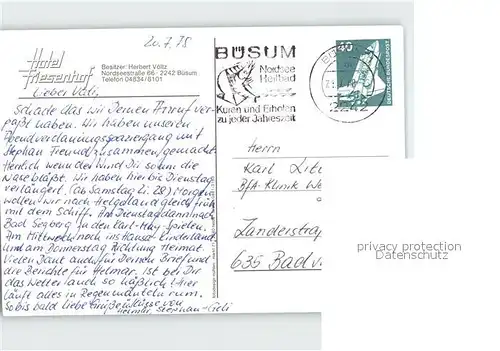 20.7.78
Hotel
Friesenhof
Besitzer: Herbert Völtz
Nordseestraße 66 - 2242 Büsum
Telefon 04834/8101
BÜSUM
Nordsee
Heilbad
Kuren und Erholen
zu jeder Jahreszeit
DEUTSCHE BUNDESPOST
Lieber Vati,
Schade das wir Deinen Anruf ver-
paßt haben. Wir haben unseren
Abendverdauungsspaziergang mit
Stephan Freund zusammen gemacht.
Herrlich wenn der Wind Dir so um die
Nase bläßt. Wir haben hier bis Dienstag
verlängert. (ab Samstag Zi. 28) Morgen
wollen wir nach Helgoland gleich früh
mit dem Schiff. Am Dienstag dann nach
Bad Segberg zu den Karl-May-Spielen.
Am Mittwoch noch ins Hansa-Kinderland
und am Donnerstag Richtung Heimat.
Vielen Dank auch für Deinen Brief und
die Berichte für Helmar. Ist bei Dir
das Wetter auch so häßlich? Hier
läuft alles in Regenmänteln rum.
So bis bald liebe Grüße u. Küsse von
Helmar, Stephan + Gili
Herrn
Karl
BfA-Klinik
635 Bad
privacy protection
Datenschutz